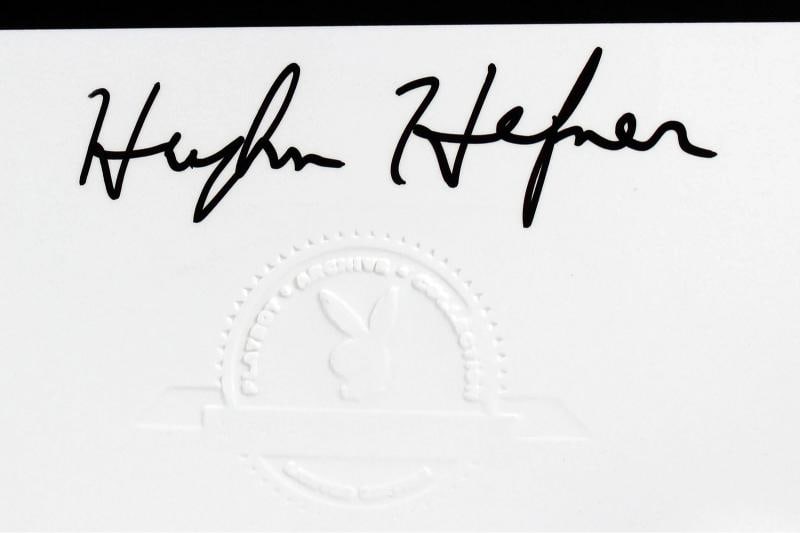 Hugh Hefner
PLAYBOY • ARCHIVE • COLLECTION